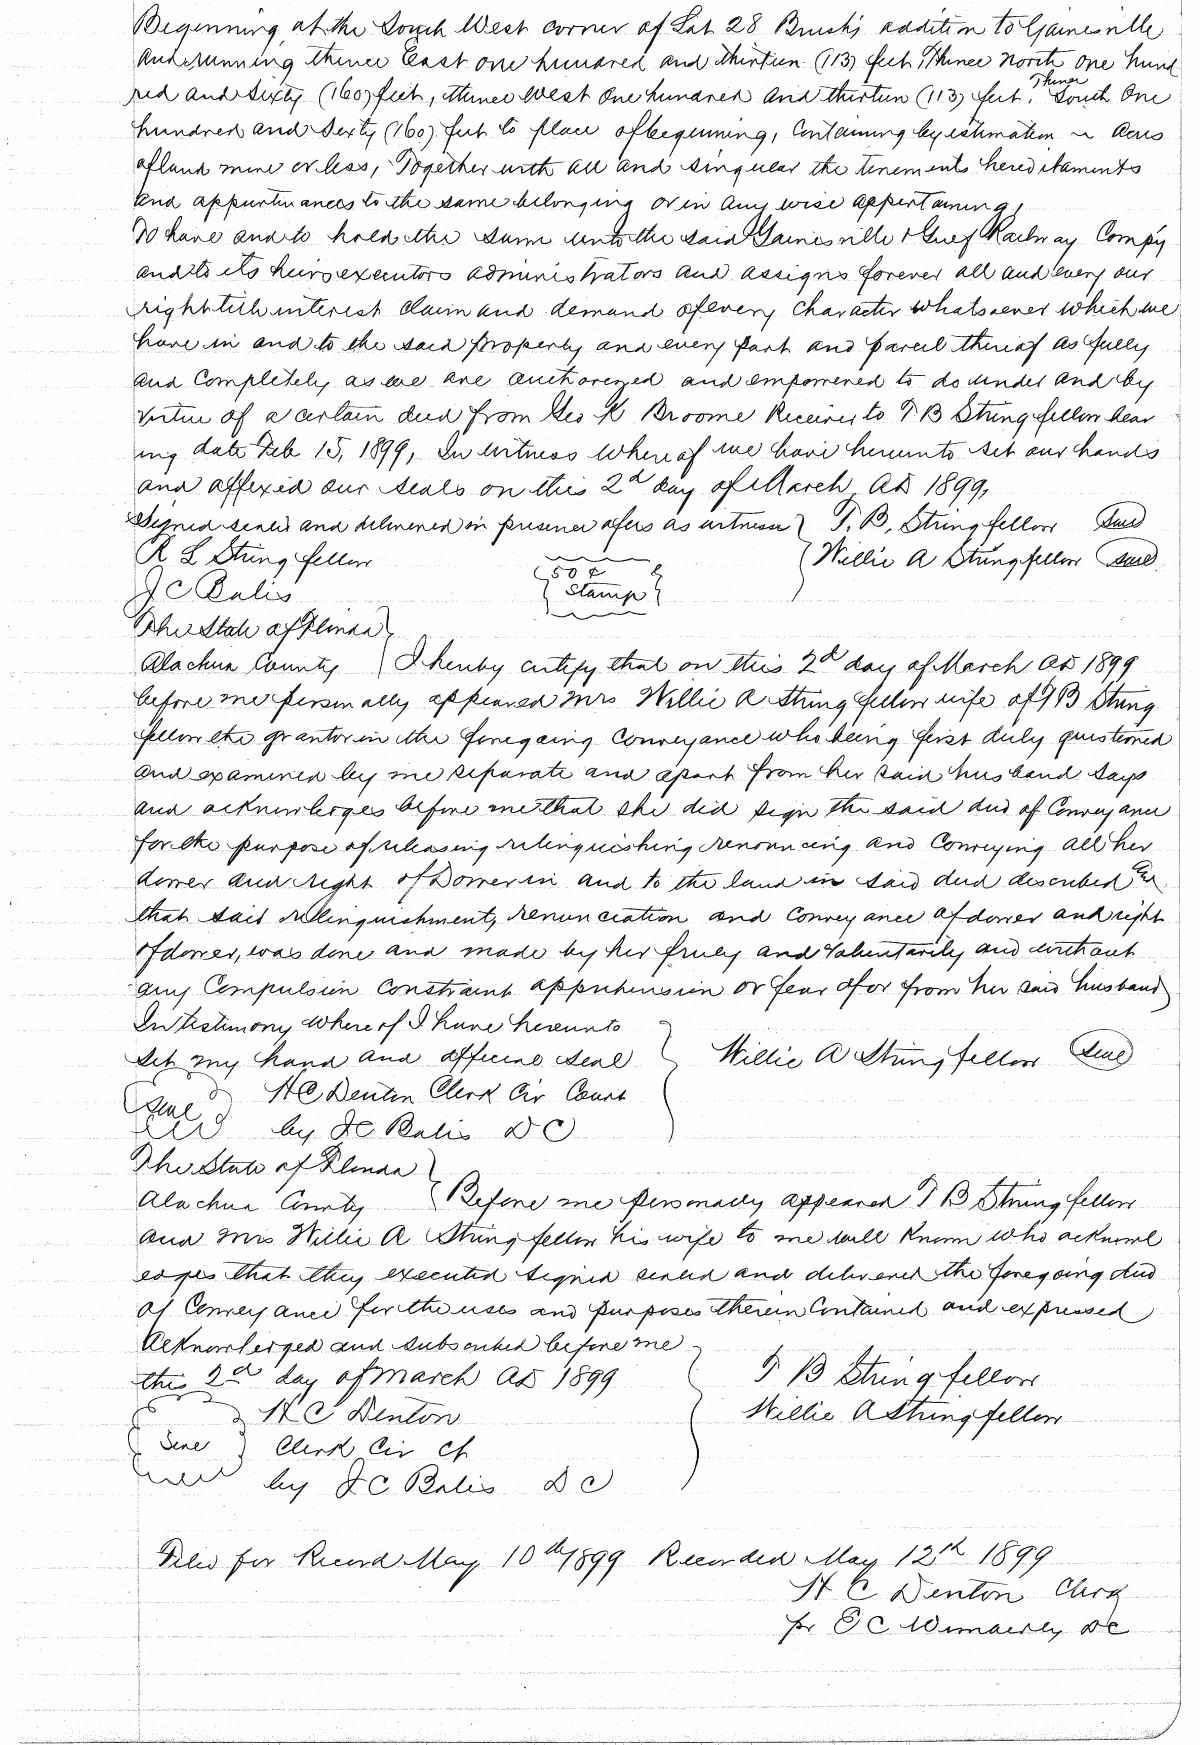 Beginning at the South West corner of Lot 28 Brush's addition to Gainesville
and running thence East one hundred and thirteen (113) feet, thence North one hund
red and sixty (160) feet, thence West One hundred and thirteen (113) feet, Thence South One
hundred and Sixty (160) feet to place of beginning, Containing by estimation ~ Acres
of land more or less, Together with all and singular the tenements hereditaments
and appurtinances to the same belonging or in any wise appertaining,
To have and to hold the same unto the said Gainesville & Gulf Railway Compy
and to its heirs executors administrators and assigns forever all and every our
right title interest claim and demand of every character whatsoever which we
have in and to the said property and every part and parcel thereof as fully
and completely as we are authorized and empowered to do under and by
virtue of a certain deed from Geo K Broome Receiver to T B Stringfellow bear
ing date Feb 15, 1899, In witness whereof we have hereunto set our hands
and affixed our seals on this 2d day of March AD 1899,
Signed sealed and delivered in presence of us as witness } T. B. Stringfellow Seal
R L Stringfellow Willie A Stringfellow Seal
J C Balis
50 ¢
Stamp
The State of Florida
Alachua County I hereby certify that on this 2d day of March AD 1899
before me personally appeared Mrs Willie A Stringfellow wife of T B String
fellow the grantor in the foregoing conveyance who being first duly questioned
and examined by me separate and apart from her said husband says
and acknowledges before me that she did sign the said deed of Conveyance
for the purpose of releasing relinquishing renouncing and Conveying all her
dower and right of Dower in and to the land in said deed described
that said relinquishment, renunciation and Conveyance of dower and right
of dower, was done and made by her freely and Voluntarily and without
any Compulsion constraint apprehension or fear of or from her said husband
In testimony whereof I have hereunto
set my hand and official seal Willie A Stringfellow Seal
Seal H C Denton Clerk Cir Court
by J C Balis D C
The State of Florida
Alachua County Before me personally appeared T B Stringfellow
and Mrs Willie A Stringfellow his wife to me well known who acknowl
edges that they executed signed sealed and delivered the foregoing deed
of Conveyance for the uses and purposes therein Contained and expressed
Acknowledged and subscribed before me
this 2d day of March AD 1899 T B Stringfellow
H C Denton Willie A Stringfellow
Seal Clerk Cir Ct
by J C Balis D C
Filed for Record May 10th 1899 Recorded May 12th 1899
H C Denton Clerk
pr E C Wimberly DC